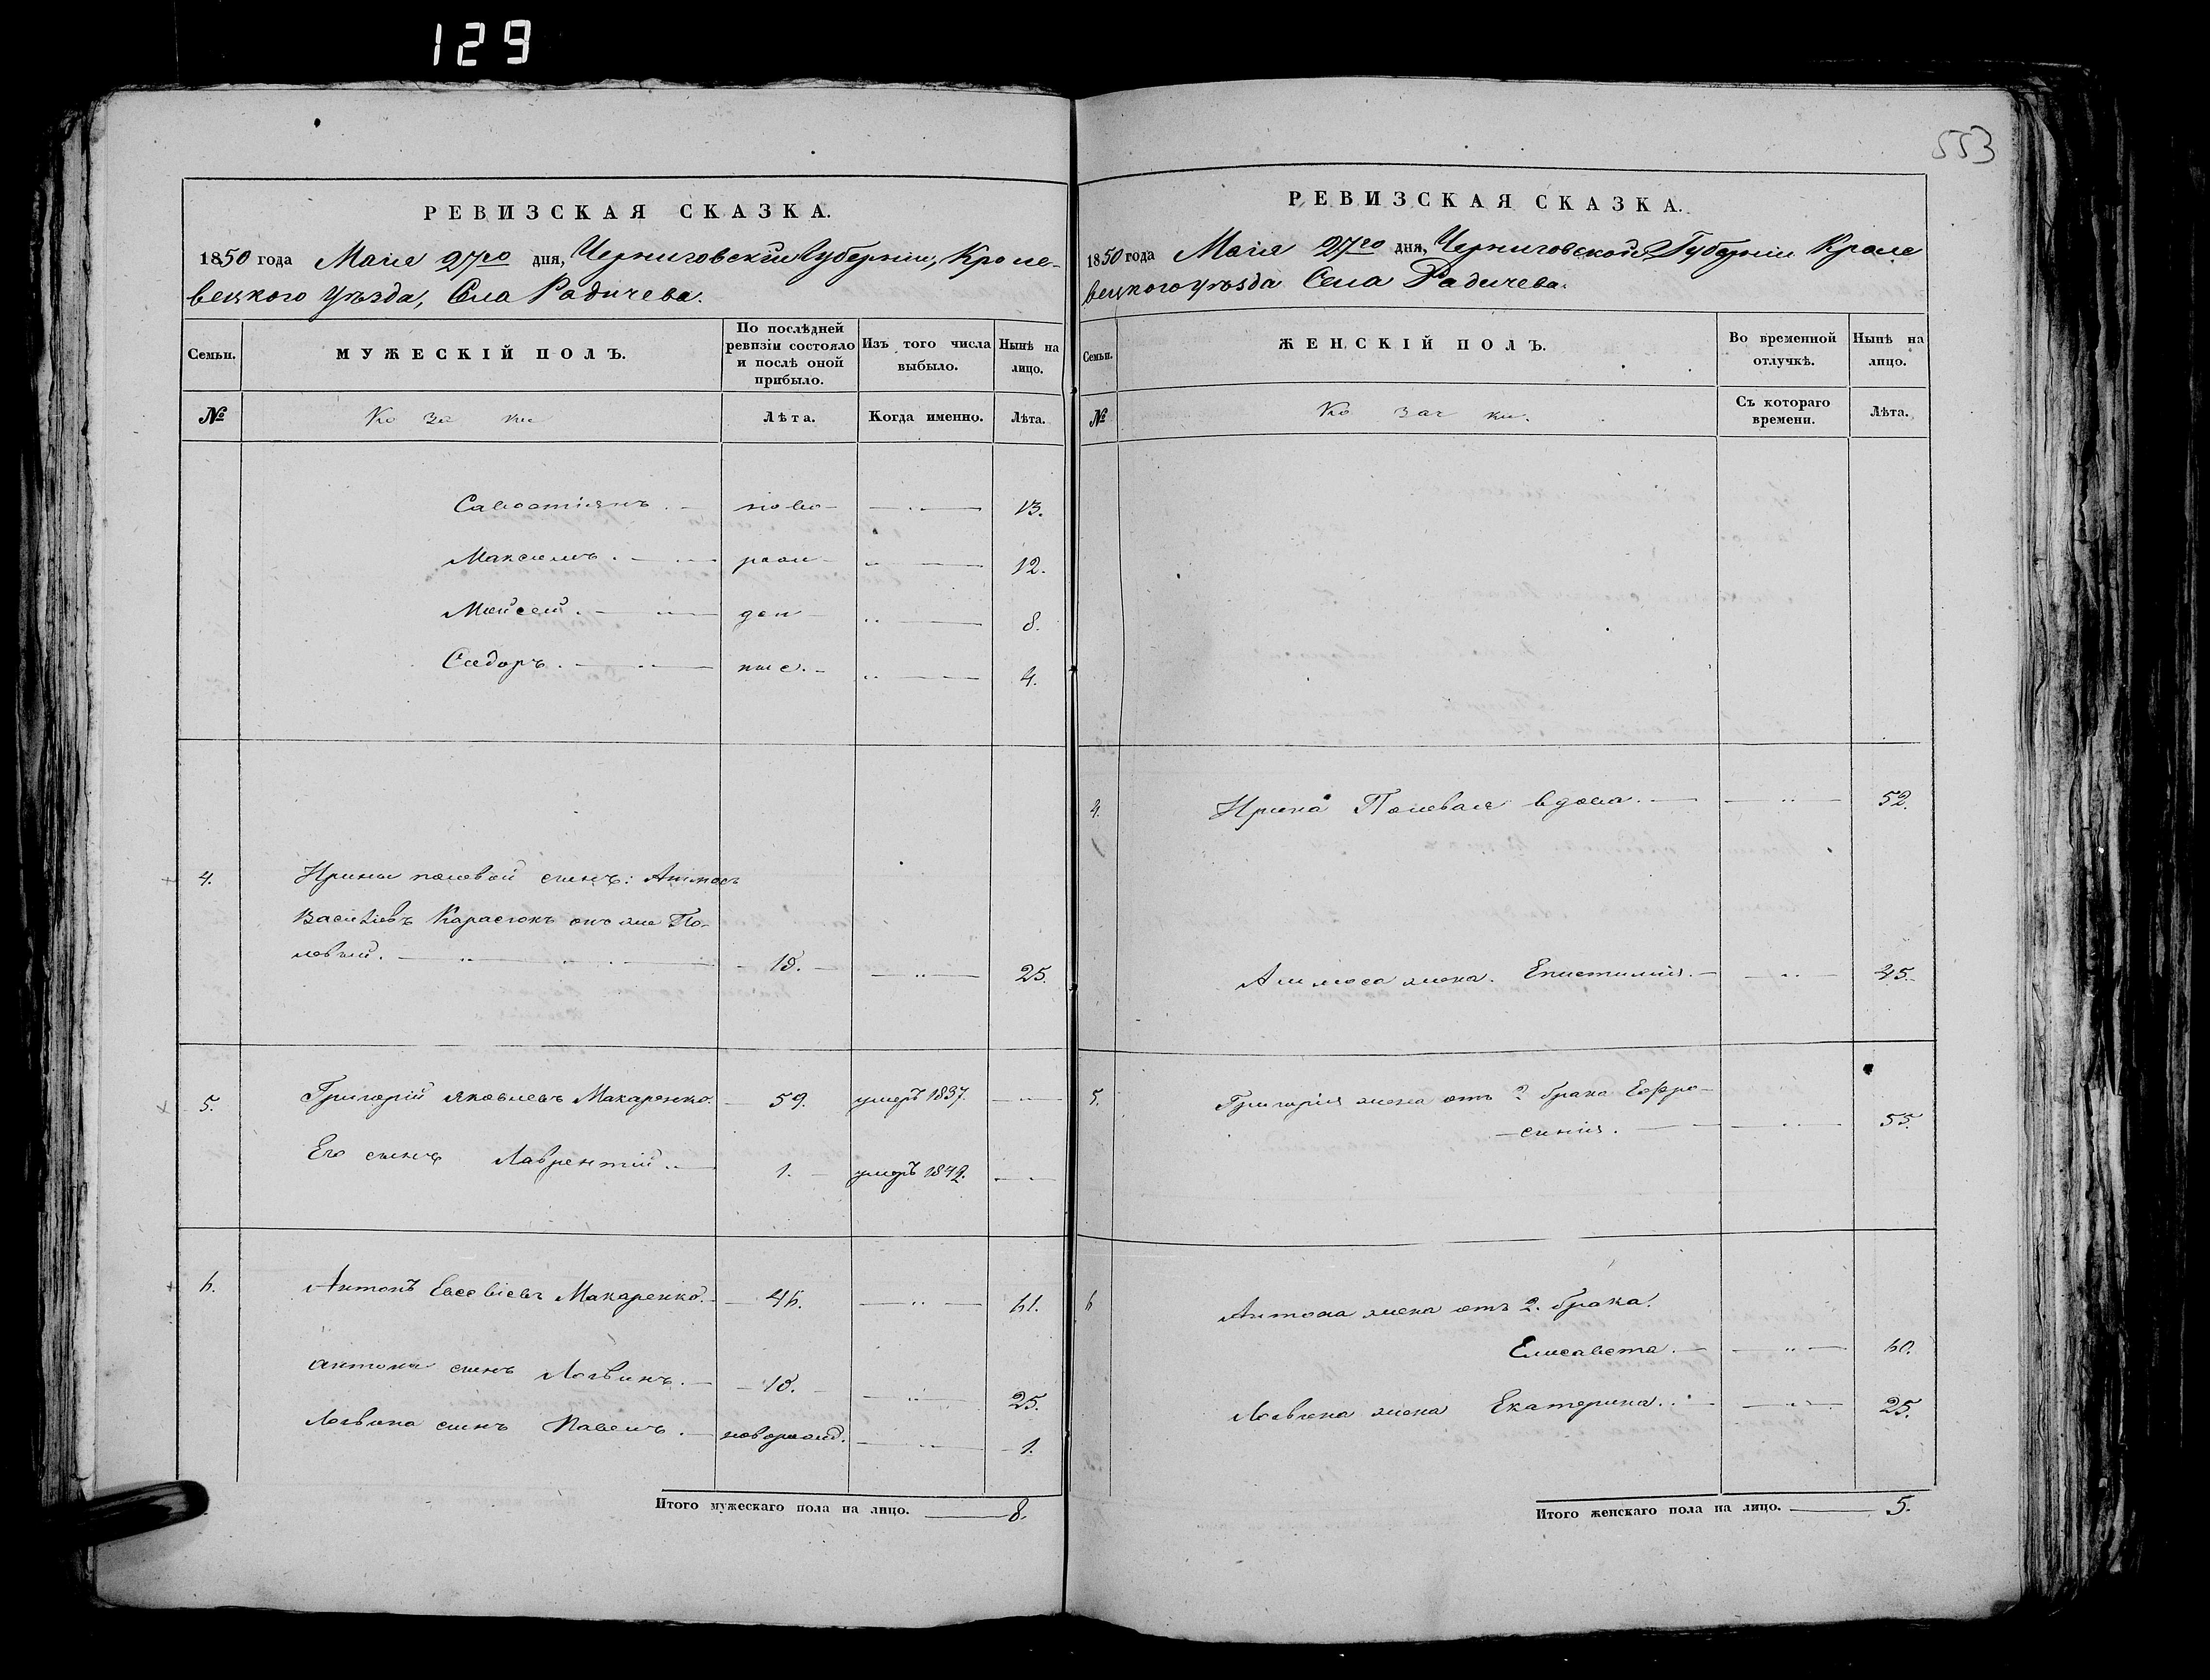 129
553
РЕВИЗСКАЯ СКАЗКА.
1850 года Маія 27го дня, Черниговской Губерніи, Кроле-
вецкого Уѣзда, Села Радичева.
Семьи.
МУЖЕСКІЙ ПОЛЪ.
По послѣдней ревизіи состояло и послѣ оной прибыло.
Изъ того числа выбыло.
Нынѣ на лицо.
№
Ко за ки
Лѣта.
Когда именно.
Лѣта.
Савостіянъ. ново- 13.
Максимъ. рож- 12.
Мойсей. ден- 8.
Сидоръ. ные. 4.
4. Ирины полевой сынъ: Аммосъ
Васильевъ Карасюкъ онъ же По-
левый. 18. 25.
5. Григорій Яковлевъ Макаренко. 59. умеръ 1837.
Его сынъ Лаврентій. 1. умеръ 1842.
6. Антонъ Евсевіевъ Макаренко. 46. 61.
Антона сынъ Логвинъ. 10. 25.
Логвина сынъ Павелъ. новорожд. 1.
Итого мужескаго пола на лицо. 8.
РЕВИЗСКАЯ СКАЗКА.
1850 года Маія 27го дня, Черниговской Губерніи Кроле
вецкого уѣзда Села Радичева.
Семьи.
ЖЕНСКІЙ ПОЛЪ.
Во временной отлучкѣ.
Нынѣ на лицо.
№
Ко зач ки.
Съ котораго времени.
Лѣта.
4. Ирина Полевая вдова. 52.
Аммоса жена. Епистимія. 25.
5. Григорія жена отъ 2 брака Евфро-
синія. 55.
6 Антона жена отъ 2. брака.
Елисавета. 60.
Логвина жена Екатерина. 25.
Итого женскаго пола на лицо. 5.